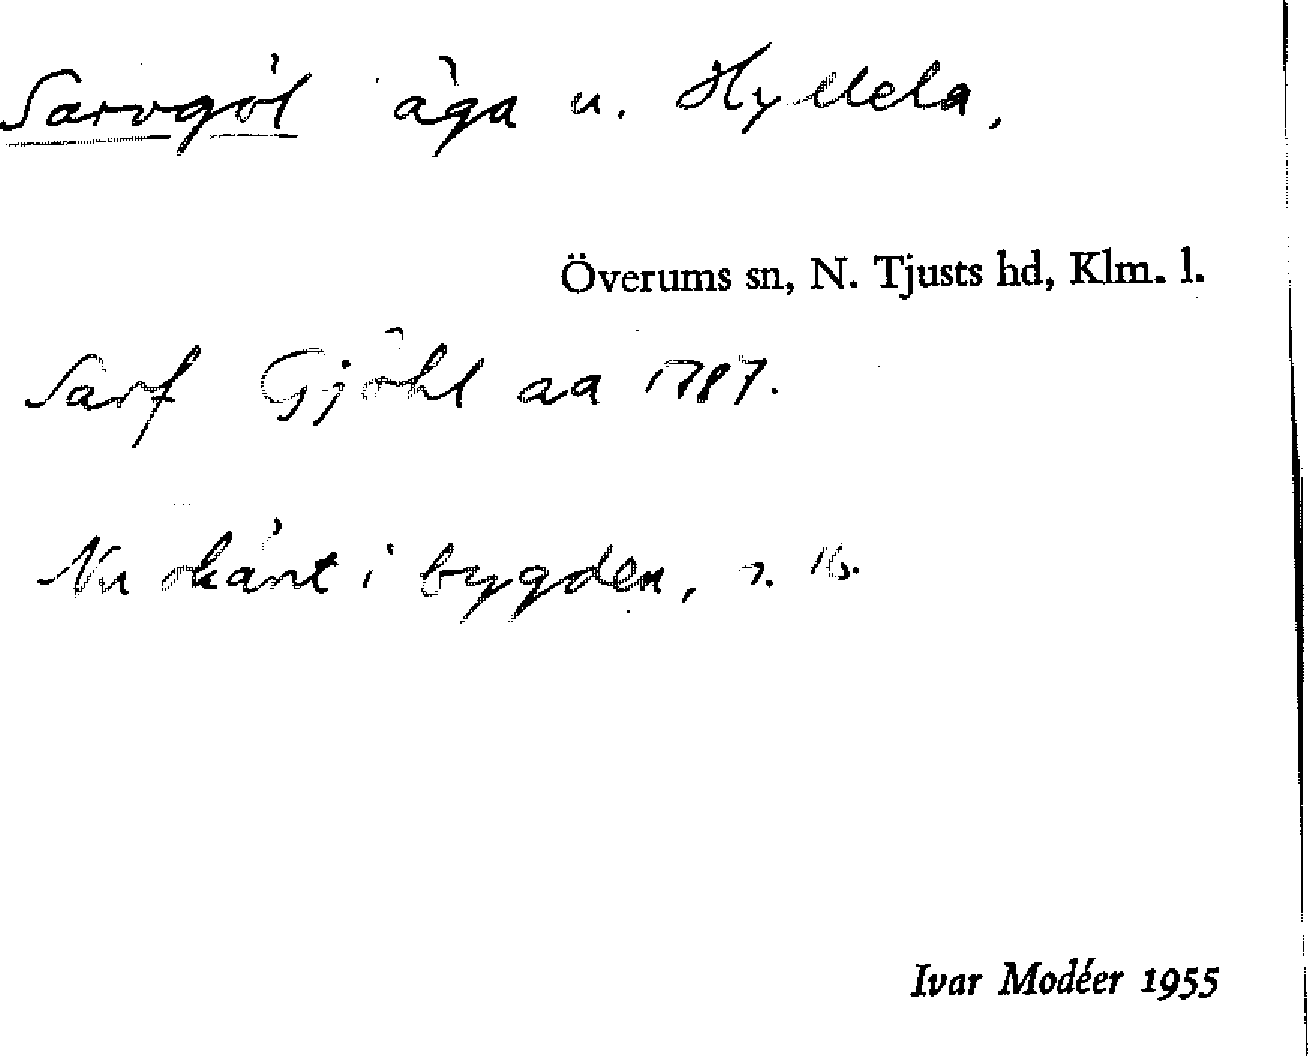 Sarvgöl äga u. Hyllela,
Överums sn, N. Tjusts hd, Klm. l.
Sarf Gjöhl aa 1787.
Nu okänt i bygden,
Ivar Modéer 1955